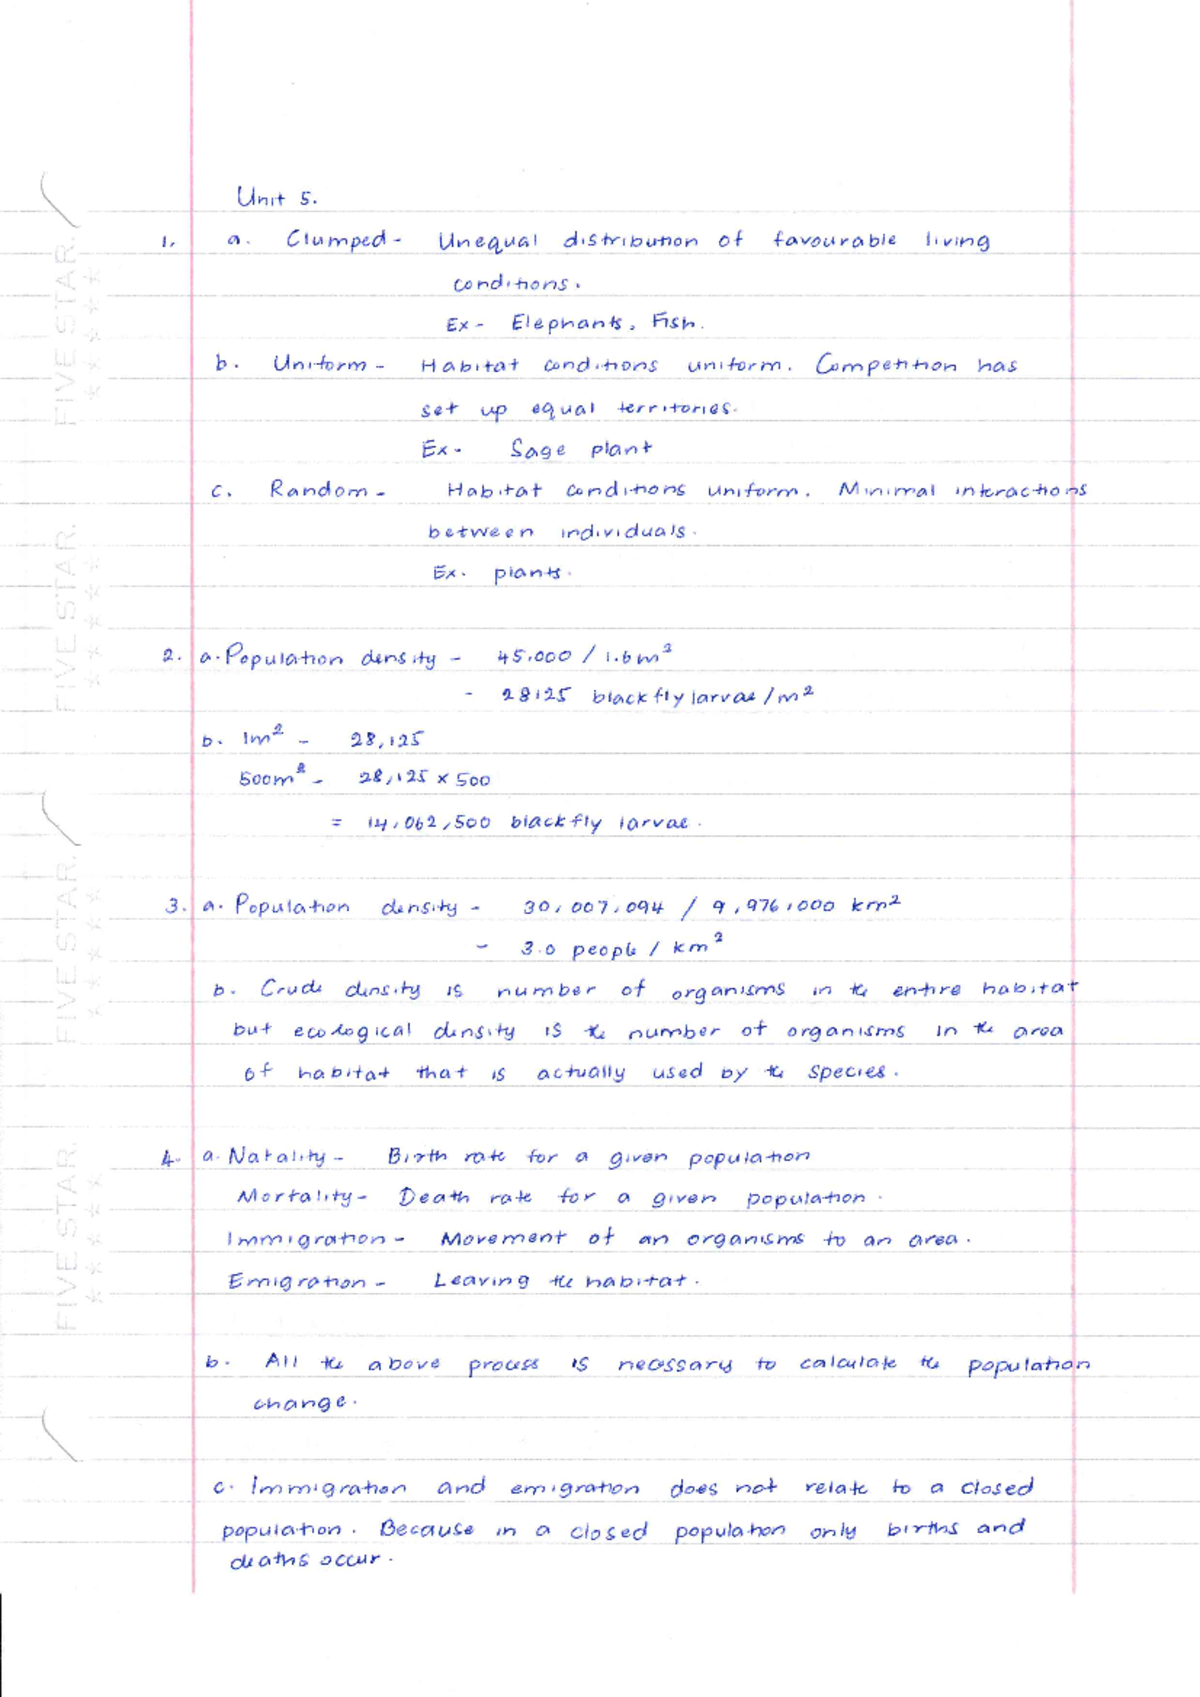 Unit 5.
1. a. Clumped - Unequal distribution of favourable living
conditions.
Ex - Elephants, Fish.
b. Uniform - Habitat conditions uniform. Competition has
set up equal territories.
Ex - Sage plant
c. Random - Habitat conditions uniform. Minimal interactions
between individuals.
Ex. plants.
2. a. Population density - 45,000 / 1.6 m²
- 28125 blackfly larvae / m²
b. 1m² - 28,125
500m² - 28,125 x 500
= 14,062,500 blackfly larvae.
3. a. Population density - 30,007,094 / 9,976,000 km²
- 3.0 people / km²
b. Crude density is number of organisms in the entire habitat
but ecological density is the number of organisms in the area
of habitat that is actually used by the species.
4. a. Natality - Birth rate for a given population
Mortality - Death rate for a given population.
Immigration - Movement of an organisms to an area.
Emigration - Leaving the habitat.
b. All the above process is necessary to calculate the population
change.
c. Immigration and emigration does not relate to a closed
population. Because in a closed population only births and
deaths occur.
FIVE STAR.
FIVE STAR.
FIVE STAR.
FIVE STAR.